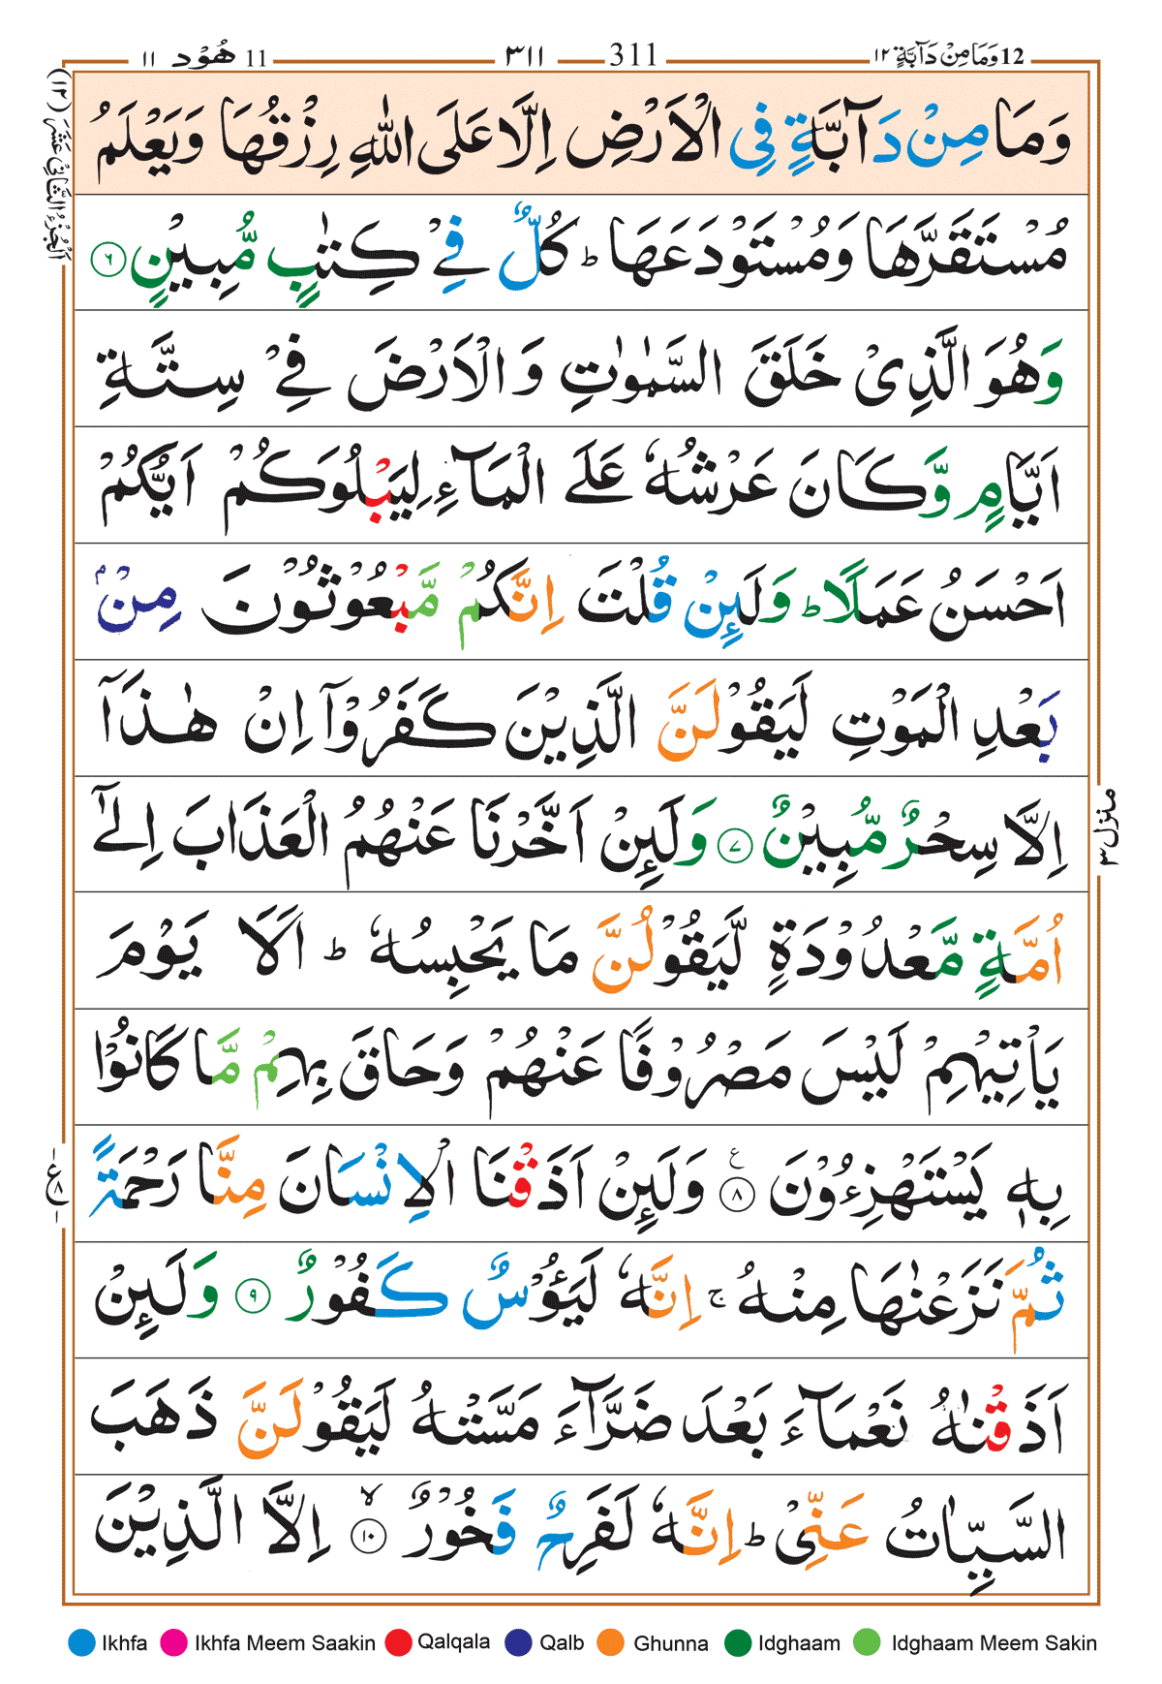 12 وَمَا مِنْ دَآبَّةٍ ١٢ 311 ٣١١ 11 هُوْد ١١
اَلْجُزْءُ الثَّانِیْ عَشَرَ (١٢)
وَمَا مِنْ دَآبَّةٍ فِی الْاَرْضِ اِلَّا عَلَی اللّٰهِ رِزْقُهَا وَیَعْلَمُ
مُسْتَقَرَّهَا وَمُسْتَوْدَعَهَا ؕ كُلٌّ فِیْ كِتٰبٍ مُّبِیْنٍ ۶
وَهُوَ الَّذِیْ خَلَقَ السَّمٰوٰتِ وَالْاَرْضَ فِیْ سِتَّةِ
اَیَّامٍ وَّكَانَ عَرْشُهٗ عَلَی الْمَآءِ لِیَبْلُوَكُمْ اَیُّكُمْ
اَحْسَنُ عَمَلًا ؕ وَلَىِٕنْ قُلْتَ اِنَّكُمْ مَّبْعُوْثُوْنَ مِنْۢ
بَعْدِ الْمَوْتِ لَیَقُوْلَنَّ الَّذِیْنَ كَفَرُوْۤا اِنْ هٰذَاۤ
اِلَّا سِحْرٌ مُّبِیْنٌ ۷ وَلَىِٕنْ اَخَّرْنَا عَنْهُمُ الْعَذَابَ اِلٰۤی
اُمَّةٍ مَّعْدُوْدَةٍ لَّیَقُوْلُنَّ مَا یَحْبِسُهٗ ؕ اَلَا یَوْمَ
یَاْتِیْهِمْ لَیْسَ مَصْرُوْفًا عَنْهُمْ وَحَاقَ بِهِمْ مَّا كَانُوْا
بِهٖ یَسْتَهْزِءُوْنَ ۸ ع وَلَىِٕنْ اَذَقْنَا الْاِنْسَانَ مِنَّا رَحْمَةً
ثُمَّ نَزَعْنٰهَا مِنْهُ ۚ اِنَّهٗ لَیَـُٔوْسٌ كَفُوْرٌ ۹ وَلَىِٕنْ
اَذَقْنٰهُ نَعْمَآءَ بَعْدَ ضَرَّآءَ مَسَّتْهُ لَیَقُوْلَنَّ ذَهَبَ
السَّیِّاٰتُ عَنِّیْ ؕ اِنَّهٗ لَفَرِحٌ فَخُوْرٌ ۙ ۱۰ اِلَّا الَّذِیْنَ
منزل ۳
Ikhfa Ikhfa Meem Saakin Qalqala Qalb Ghunna Idghaam Idghaam Meem Sakin